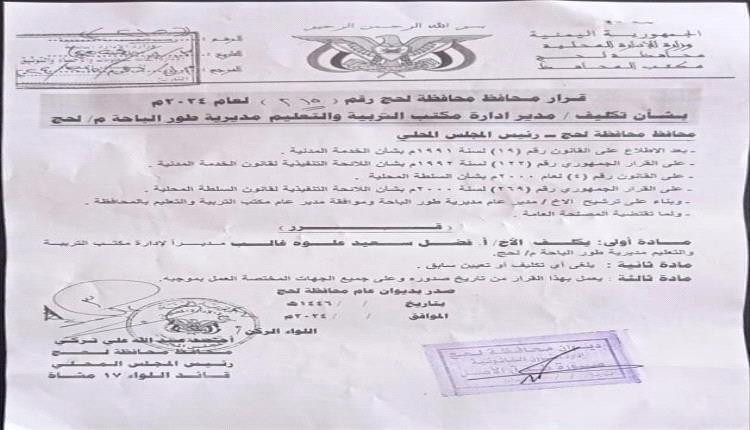 بسم الله الرحمن الرحيم
الجمهورية اليمنية
وزارة الإدارة المحلية
محافظة لحج
مكتب المحافظ
الرقم :
التاريخ :
المرجع :
قرار محافظ محافظة لحج رقم ( ٢١٥ ) لعام ٢٠٢٤م
بشأن تكليف / مدير ادارة مكتب التربية والتعليم مديرية طور الباحة م/ لحج
محافظ محافظة لحج – رئيس المجلس المحلي
- بعد الاطلاع على القانون رقم (١٩) لسنة ١٩٩١م بشأن الخدمة المدنية .
- على القرار الجمهوري رقم (١٢٢) لسنة ١٩٩٢م بشأن اللائحة التنفيذية لقانون الخدمة المدنية .
- على القانون رقم (٤) لعام ٢٠٠٠م بشأن السلطة المحلية .
- على القرار الجمهوري رقم (٢٦٩) لسنة ٢٠٠٠م بشأن اللائحة التنفيذية لقانون السلطة المحلية .
- وبناء على ترشيح الاخ/ مدير عام مديرية طور الباحة وموافقة مدير عام مكتب التربية والتعليم بالمحافظة .
- ولما تقتضية المصلحة العامة .
( قــــــرر )
مـادة أولى: يكلف الأخ/ أ. فضل سعيد علوه غالب مديراً لإدارة مكتب التربية
والتعليم مديرية طور الباحة م/ لحج.
مادة ثانية : يلغى أي تكليف أو تعيين سابق .
مادة ثالثة : يعمل بهذا القرار من تاريخ صدوره وعلى جميع الجهات المختصة العمل بموجبه.
صدر بديوان عام محافظة لحج
بتاريخ / / ١٤٤٦هـ
الموافق / / ٢٠٢٤م
اللواء الركن /
أحمد عبد الله علي تركي
محافظ محافظة لحج
رئيس المجلس المحلي
قائد اللواء ١٧ مشاة
ديوان محافظة لحج
صورة الأصل